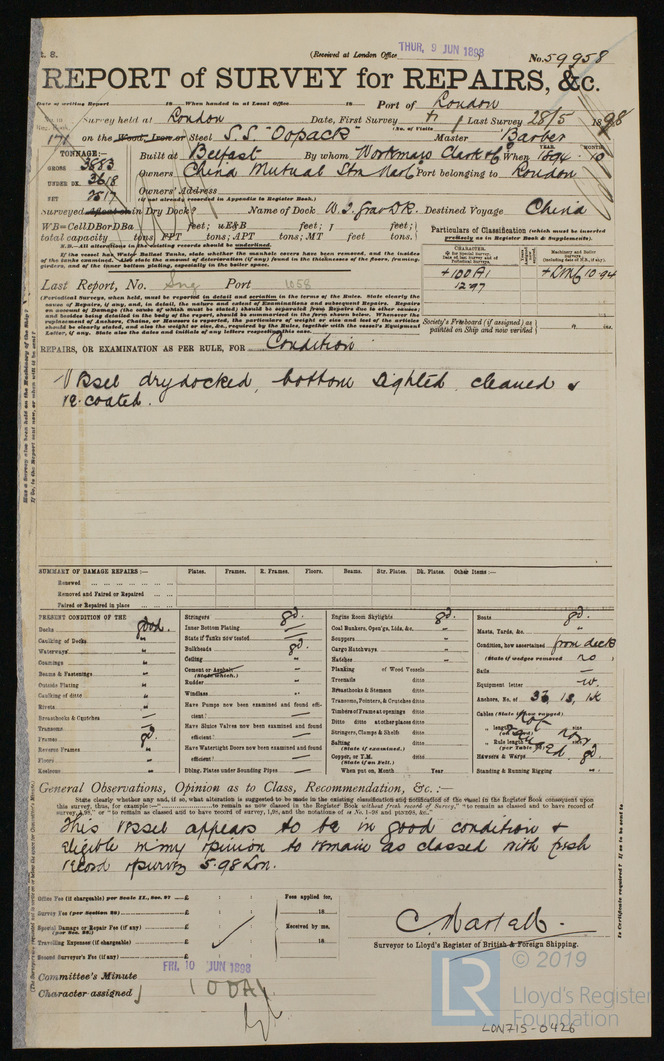 (Received at London Office THUR, 9 JUN 1898
No. 59958
REPORT of SURVEY for REPAIRS, &c.
Date of writing Report 18 When handed in at Local Office 18 Port of London
No. in Survey held at London Date, First Survey Last Survey 28/5 1898
(No. of Visits
171 on the Wood, Iron or Steel S.S. "Oopack" Master Barber
TONNAGE:—
GROSS 3883
UNDER DK. 3618
NET 2517
Built at Belfast By whom Workman Clark & Co When 1894 MONTH. 10
YEAR.
Owners China Mutual Stm Nav Co Port belonging to London
Owners' Address
(if not already recorded in Appendix to Register Book.)
Surveyed Afloat or in Dry Dock? Name of Dock Destined Voyage China
WB=CellDBorDBa feet; uE&B feet; f feet;
total capacity tons FPT tons; APT tons; MT feet tons.
N.B.—All alterations in the existing records should be underlined.
If the vessel has Water Ballast Tanks, state whether the manhole covers have been removed, and the insides
of the tanks examined. Also state the amount of deterioration (if any) found in the thicknesses of the floors, framing,
girders, and of the inner bottom plating, especially in the boiler space.
Particulars of Classification (which must be inserted
precisely as in Register Book & Supplements).
CHARACTER.
+100A1
12 97
+LMC 10 94
Society's Freeboard (if assigned) as
painted on Ship and now verified ins.
Last Report, No. Port 1058
(Periodical Surveys, when held, must be reported in detail and seriatim in the terms of the Rules. State clearly the
cause of Repairs, if any, and, in detail, the nature and extent of Examinations and subsequent Repairs. Repairs
on account of Damage (the cause of which must be stated) should be separated from Repairs due to other causes;
and besides being detailed in the body of the report, should be summarized in the form shown below. Whenever the
replacement of Anchors, Chains, or Hawsers is reported, the particulars of weight or size and test of the articles
should be clearly stated, and also the weight or size, &c., required by the Rules, together with the vessel's Equipment
Letter, if any. State also the dates and initials of any letters respecting this case.
REPAIRS, OR EXAMINATION AS PER RULE, FOR Condition
Vessel drydocked, bottom sighted, cleaned &
re-coated.
SUMMARY OF DAMAGE REPAIRS:— Plates. Frames. R. Frames. Floors. Beams. Str. Plates. Dk. Plates. Other Items:—
Renewed
Removed and Faired or Repaired
Faired or Repaired in place
PRESENT CONDITION OF THE
Decks good.
Caulking of Decks "
Waterways "
Coamings "
Beams & Fastenings "
Outside Plating "
Caulking of ditto "
Rivets "
Breasthooks & Crutches
Transoms
Frames gd.
Reverse Frames "
Floors "
Keelsons "
Stringers gd.
Inner Bottom Plating
State if Tanks now tested
Bulkheads gd.
Ceiling "
Cement or Asphalt
(State which.)
Rudder
Windlass "
Have Pumps now been examined and found effi-
cient?
Have Sluice Valves now been examined and found
efficient?
Have Watertight Doors now been examined and found
efficient?
Dblng. Plates under Sounding Pipes
Engine Room Skylights gd.
Coal Bunkers, Open'gs, Lids, &c. "
Scuppers "
Cargo Hatchways "
Hatches "
Planking of Wood Vessels
Treenails ditto
Breasthooks & Stemson ditto
Transoms, Pointers, & Crutches ditto
Timbers of Frame at openings ditto
Ditto ditto at other places ditto
Stringers, Clamps & Shelfs ditto
Salting ditto
(State if examined.)
Copper, or Y.M. ditto
(State if on Felt.)
When put on, Month Year
Boats gd.
Masts, Yards, &c. "
Condition, how ascertained from deck
(State if wedges removed no )
Sails
Equipment letter
Anchors, No. of 3B, 1S, 1K
Cables (State if now ranged) not
Hawsers & Warps gd.
Standing & Running Rigging "
General Observations, Opinion as to Class, Recommendation, &c.:—
State clearly whether any, if so, what alteration is suggested to be made in the existing classification and notification of the vessel in the Register Book consequent upon
This vessel appears to be in good condition &
eligible in my opinion to remain as classed with fresh
record of survey 5.98 Lon.
Office Fee (if chargeable) per Scale II., Sec. 27 £
Survey Fee (per Section 29) £
Special Damage or Repair Fee (if any) £
(per Sec. 28.)
Travelling Expenses (if chargeable) £
Second Surveyor's Fee (if any) £
Fees applied for,
18
Received by me,
18
C. Martell
Surveyor to Lloyd's Register of British & Foreign Shipping.
FRI. 10 JUN 1898
Committee's Minute
Character assigned 100A1
LR © 2019
Lloyd's Register
Foundation
LON715-0426